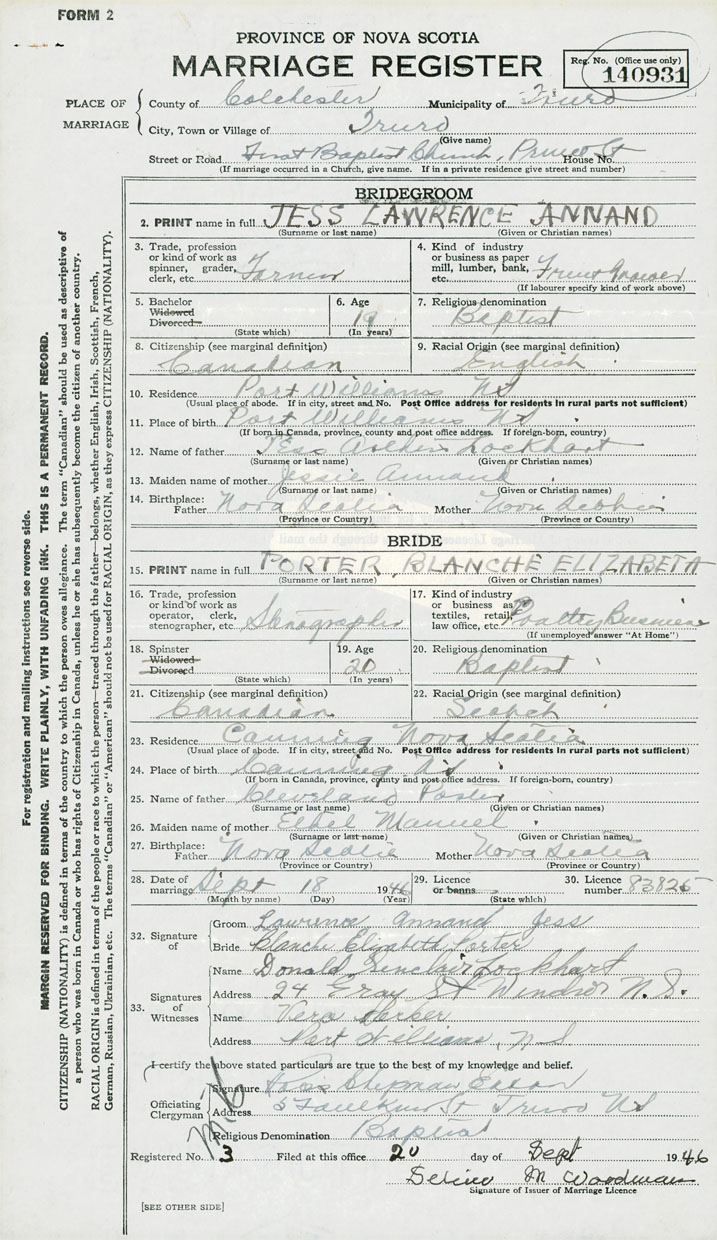 FORM 2
PROVINCE OF NOVA SCOTIA
MARRIAGE REGISTER
Reg. No. (Office use only)
140931
PLACE OF MARRIAGE
County of Colchester Municipality of Truro
City, Town or Village of Truro
(Give name)
Street or Road First Baptist Church, Prince St House No.
(If marriage occurred in a Church, give name. If in a private residence give street and number)
BRIDEGROOM
2. PRINT name in full JESS LAWRENCE ANNAND
(Surname or last name) (Given or Christian names)
3. Trade, profession or kind of work as spinner, grader, clerk, etc. Farmer
4. Kind of industry or business as paper mill, lumber, bank, etc. Fruit Grower
(If labourer specify kind of work above)
5. Bachelor Widowed Divorced
(State which)
6. Age 19
(In years)
7. Religious denomination
Baptist
8. Citizenship (see marginal definition)
Canadian
9. Racial Origin (see marginal definition)
English
10. Residence Port Williams NS
(Usual place of abode. If in city, street and No. Post Office address for residents in rural parts not sufficient)
11. Place of birth Port Williams NS
(If born in Canada, province, county and post office address. If foreign-born, country)
12. Name of father Lockhart
(Surname or last name) (Given or Christian names)
13. Maiden name of mother Jessie Annand
(Surname or last name) (Given or Christian names)
14. Birthplace:
Father Nova Scotia Mother Nova Scotia
(Province or Country) (Province or Country)
BRIDE
15. PRINT name in full PORTER, BLANCHE ELIZABETH
(Surname or last name) (Given or Christian names)
16. Trade, profession or kind of work as operator, clerk, stenographer, etc. Stenographer
17. Kind of industry or business as textiles, retail, law office, etc. Poultry Business
(If unemployed answer "At Home")
18. Spinster Widowed Divorced
(State which)
19. Age 20
(In years)
20. Religious denomination
Baptist
21. Citizenship (see marginal definition)
Canadian
22. Racial Origin (see marginal definition)
Scotch
23. Residence Canning Nova Scotia
(Usual place of abode. If in city, street and No. Post Office address for residents in rural parts not sufficient)
24. Place of birth Canning NS
(If born in Canada, province, county and post office address. If foreign-born, country)
25. Name of father Cleveland Porter
(Surname or last name) (Given or Christian names)
26. Maiden name of mother Ethel Manuel
(Surname or last name) (Given or Christian names)
27. Birthplace:
Father Nova Scotia Mother Nova Scotia
(Province or Country) (Province or Country)
28. Date of marriage Sept 18 1946
(Month by name) (Day) (Year)
29. Licence or banns
(State which)
30. Licence number 83825
32. Signature of
Groom Lawrence Annand Jess
Bride Blanche Elizabeth Porter
33. Signatures of Witnesses
Name Donald Sinclair Lockhart
Address 24 Gray St Windsor N.S.
Name Vera Parker
Address Port Williams, N S
I certify the above stated particulars are true to the best of my knowledge and belief.
Officiating Clergyman
Signature Eaton
Address 5 Faulkner St Truro NS
Religious Denomination Baptist
Registered No. 3 Filed at this office 20 day of Sept 1946
M Woodman
Signature of Issuer of Marriage Licence
[SEE OTHER SIDE]
For registration and mailing instructions see reverse side.
MARGIN RESERVED FOR BINDING. WRITE PLAINLY, WITH UNFADING INK. THIS IS A PERMANENT RECORD.
CITIZENSHIP (NATIONALITY) is defined in terms of the country to which the person owes allegiance. The term "Canadian" should be used as descriptive of
a person who was born in Canada or who has rights of Citizenship in Canada, unless he or she has subsequently become the citizen of another country.
RACIAL ORIGIN is defined in terms of the people or race to which the person—traced through the father—belongs, whether English, Irish, Scottish, French,
German, Russian, Ukrainian, etc. The terms "Canadian" or "American" should not be used for RACIAL ORIGIN, as they express CITIZENSHIP (NATIONALITY).